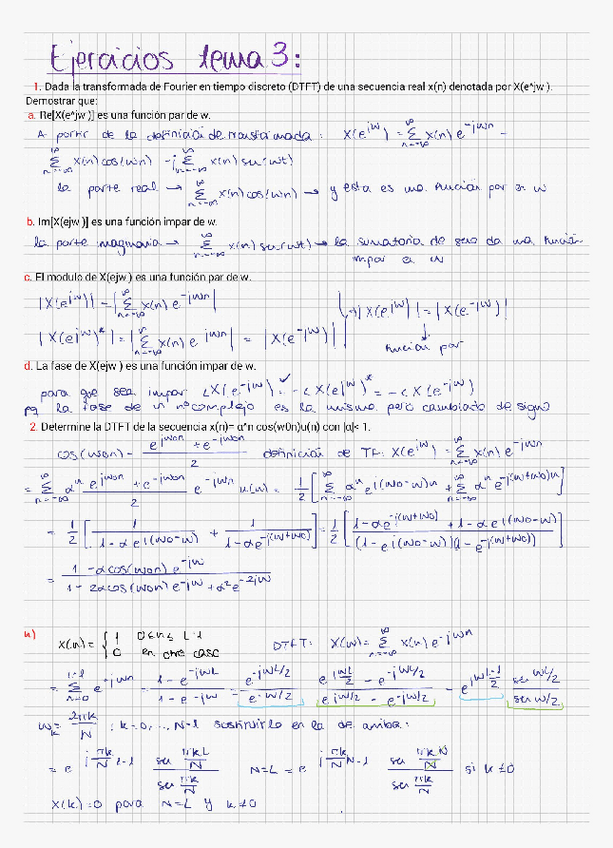 Ejercicios tema 3:
1. Dada la transformada de Fourier en tiempo discreto (DTFT) de una secuencia real x(n) denotada por X(e^jw ).
Demostrar que:
a. Re[X(e^jw )] es una función par de w.
A partir de la definición de transformada: X(e^{jw}) = Σ_{n=-∞}^{∞} x(n) e^{-jwn} =
Σ_{n=-∞}^{∞} x(n) cos(wn) - j Σ_{n=-∞}^{∞} x(n) sen(wt)
la parte real → Σ_{n=-∞}^{∞} x(n) cos(wn) → y esta es una función par en w
b. Im[X(ejw )] es una función impar de w.
la parte imaginaria → Σ_{n=-∞}^{∞} x(n) sen(wt) → la sumatoria de seno da una función
impar en w
c. El modulo de X(ejw ) es una función par de w.
|X(e^{jw})| = |Σ_{n=-∞}^{∞} x(n) e^{-jwn}| ↳ |X(e^{jw})| = |X(e^{-jw})|
|X(e^{jw})*| = |Σ_{n=-∞}^{∞} x(n) e^{jwn}| = |X(e^{-jw})| función par
d. La fase de X(ejw ) es una función impar de w.
para que sea impar ∠X(e^{-jw}) = -∠X(e^{jw})* = -∠X(e^{-jw})
pq la fase de un nº complejo es la misma pero cambiado de signo
2. Determine la DTFT de la secuencia x(n)= α^n cos(w0n)u(n) con |α|< 1.
cos(w0n) = (e^{jw0n} + e^{-jw0n})/2 definición de TF: X(e^{jw}) = Σ_{n=-∞}^{∞} x(n) e^{-jwn}
= Σ_{n=-∞}^{∞} α^n (e^{jw0n} + e^{-jw0n})/2 e^{-jwn} u(n) = 1/2 [Σ_{n=-∞}^{∞} α^n e^{j(w0-w)n} + Σ_{n=-∞}^{∞} α^n e^{-j(w+w0)n}]
= 1/2 [1/(1-αe^{j(w0-w)}) + 1/(1-αe^{-j(w+w0)})] = 1/2 [(1-αe^{-j(w+w0)} + 1-αe^{j(w0-w)})/((1-e^{j(w0-w)})(1-e^{-j(w+w0)}))]
= (1-αcos(w0n) e^{-jw})/(1-2αcos(w0n) e^{-jw} + α²e^{-2jw})
x(n) = { 1 0≤n≤L-1
0 en otro caso DTFT: X(w) = Σ_{n=-∞}^{∞} x(n) e^{-jwn}
= Σ_{n=0}^{L-1} e^{-jwn} = (1-e^{-jwL})/(1-e^{-jw}) = e^{-jwL/2}/e^{-jw/2} (e^{jwL/2} - e^{-jwL/2})/(e^{jw/2} - e^{-jw/2}) = e^{jw(L-1)/2} sen wL/2 / sen w/2
w_k = 2πk/N : k=0,...N-1 sustituirlo en la de arriba:
= e^{j πk/N L-1} sen(πkL/N)/sen(πk/N) N=L = e^{j πk/N N-1} sen(πkN/N)/sen(πk/N) si k≠0
X(k)=0 para N=L y k≠0